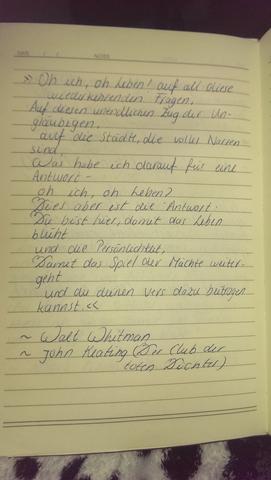 » Oh ich, oh Leben! auf all diese
wiederkehrenden Fragen,
Auf diesen unendlichen Zug der Un-
gläubigen,
auf die Städte, die voller Narren
sind,
Was habe ich darauf für eine
Antwort -
oh ich, oh Leben?
Dies aber ist die Antwort:
Du bist hier, damit das Leben
blüht
und die Persönlichkeit,
Damit das Spiel der Mächte weiter-
geht
und du deinen Vers dazu beitragen
kannst. «
~ Walt Whitman
~ John Keating (Der Club der
toten Dichter)